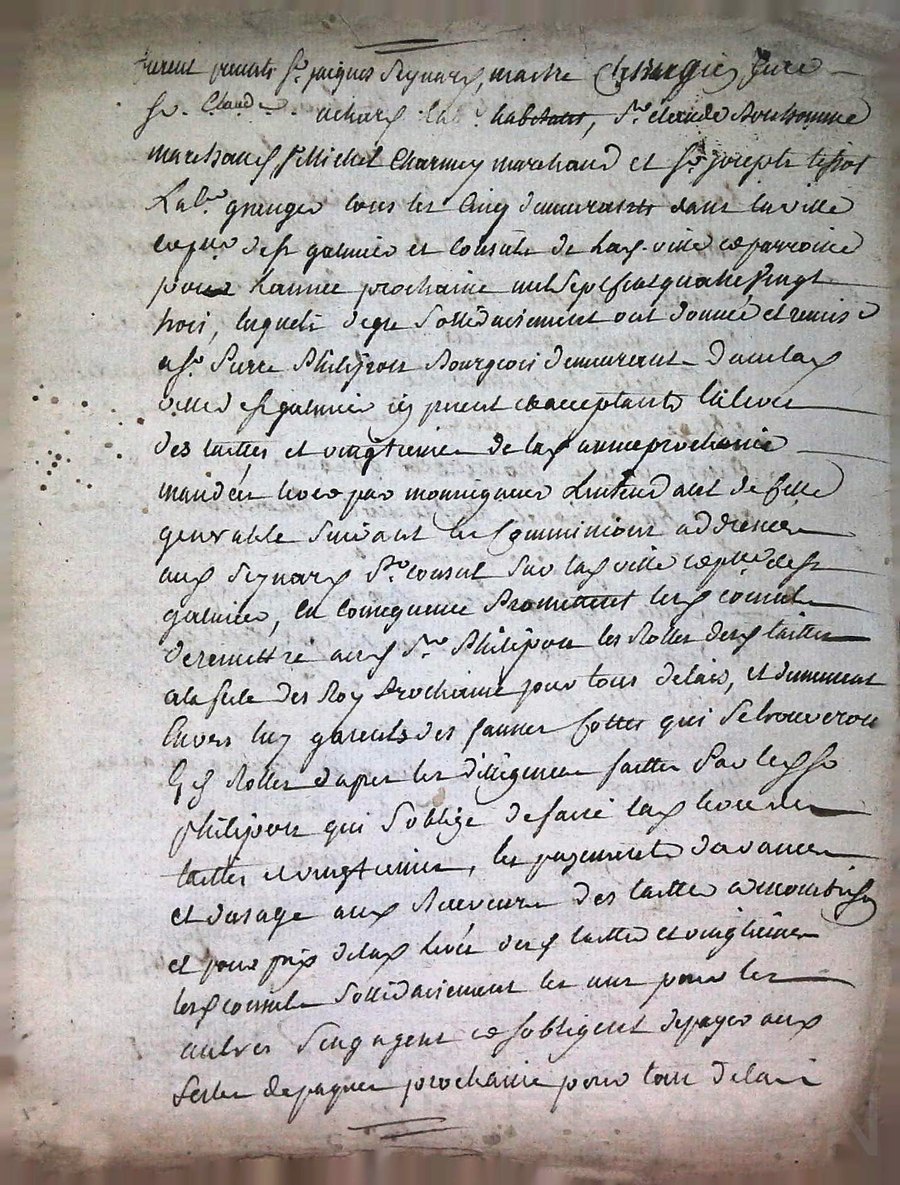 furent presents sr jacques Reynard, maitre Chirurgien juré
sr Claude achard lab. habitant, sr claude bonhomme
marchand sr Michel Charmey marchand et sr joseph
Lab. granger tous les Cinq demeurants dans la ville
et psse de st galmier et Consuls de lad. ville et parroisse
pour L'année prochaine mil sept cent quatre vingt
trois, lesquels de gré sollidairement ont donné et remis
a sr pierre philipon Bourgeois demeurant dans lad
ville de st galmier icy present et acceptant la levée
des tailles et vingtiemes de lad année prochaine
par monseigneur L'intendant de cette
generalité suivant les Commissions addressées
aud Reynard Per Consul sur lad ville et psse de st
galmier, En Consequence Promettent lesd consuls
de remettre aud sr Philipon les Rolles desd tailles
a la fete des Roy Prochaine pour tous delais, et demeurent
Envers luy garents des fausses Cottes qui se trouveront
Esd Rolles d'apres les dilligences faittes Par led sr
philipon qui s'oblige de faire lad levée des
tailles et vingtiemes, les payements d'avance
et d'usage aux Receveurs des tailles a montbrison
et pour prix de lad levée desd tailles et vingtiemes
lesd consuls sollidairement les uns pour les
autres s'engagent et s'obligent de payer aux
festes de paques prochaine pour tout delai